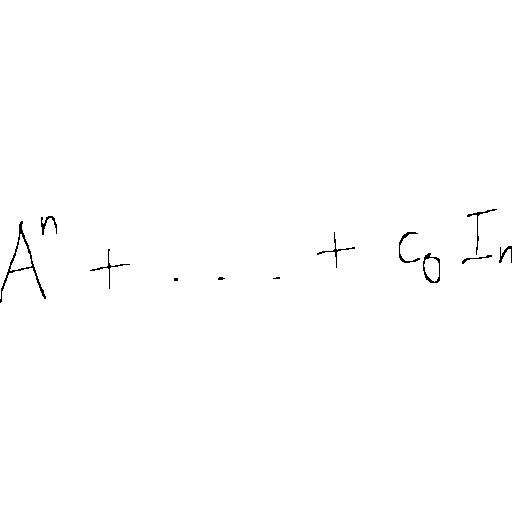 Aⁿ + . . . . + c₀ Iₙ